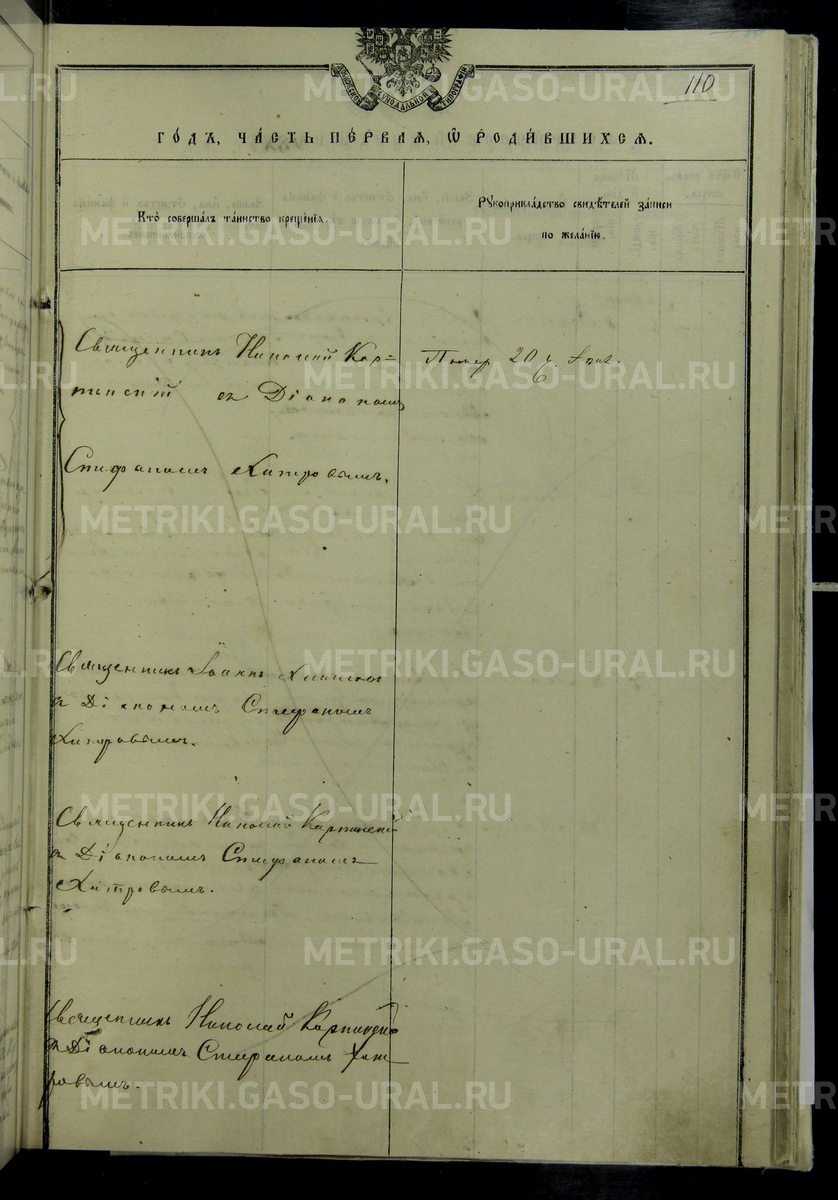 МОСКОВСКОЙ СѴНОДАЛЬНОЙ ТИПОГРАФІИ
110
ГО́ДЪ, ЧА́СТЬ ПЕ́РВАЯ, Ѡ҆ РОДИ́ВШИХСЯ.
Кто̀ совершалъ та́инство креще́нїя.
Рукоприкла́дство свидѣ́телей за́писи
по жела́нїю.
Священникъ Николай Кар=
пинскій съ Діакономъ
Стефаномъ Хитровымъ.
Помер. 20 ч.
Священникъ Іоаннъ
съ Діакономъ Стефаномъ
Хитровымъ.
Священникъ Николай Карпинскій
съ Діакономъ Стефаномъ
Хитровымъ.
Священникъ Николай Карпинскій
съ Діакономъ Стефаномъ Хит
ровымъ.
METRIKI.GASO-URAL.RU